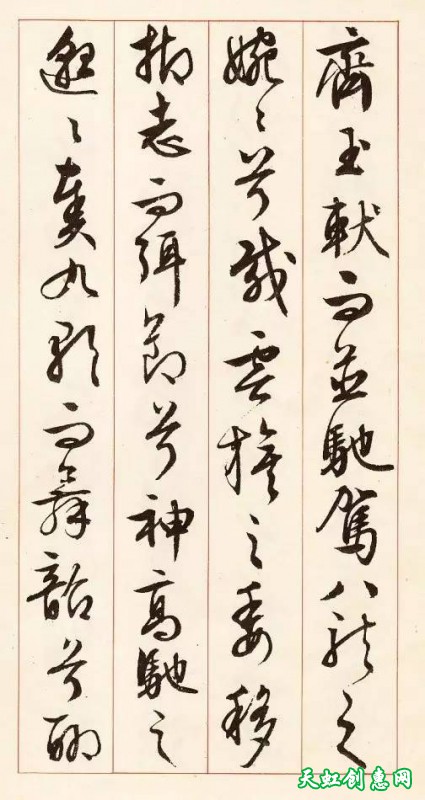 齊玉軑而並馳駕八龍之
婉々兮載雲旗之委移
抑志而弭節兮神高馳之
邈々奏九歌而舞韶兮聊
天虹创惠网